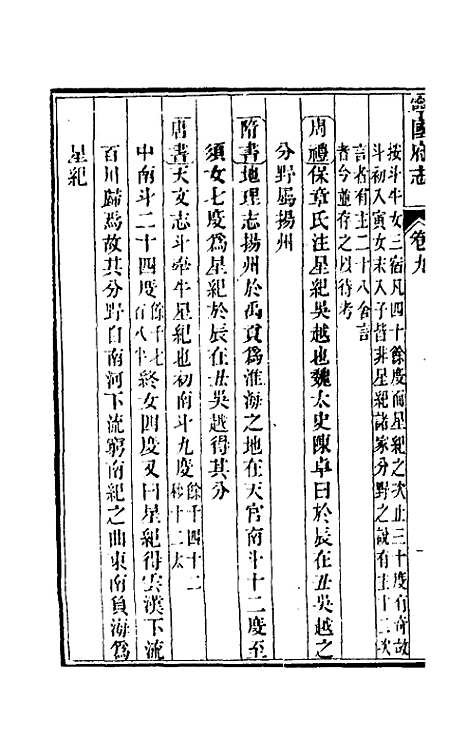 寧國府志 卷九
按斗牛女三宿凡四十餘度而星紀之次止三十度有奇故
斗初入寅女末入子皆非星紀諸家分野之說有主十二次
言者有主二十八舍言
者今並存之以待考
周禮保章氏注星紀吳越也魏太史陳卓曰於辰在丑吳越之
分野屬揚州
隋書地理志揚州於禹貢為淮海之地在天官南斗十二度至
須女七度為星紀於辰在丑吳越得其分
唐書天文志斗牽牛星紀也初南斗九度餘千四十二秒十二太
中南斗二十四度餘千七百八半終女四度又曰星紀得雲漢下流
百川歸焉故其分野自南河下流窮南紀之曲東南負海為
星紀